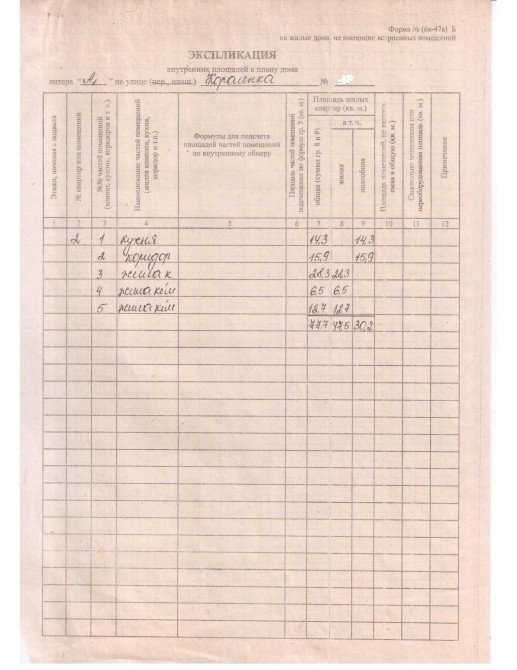 Форма № (6в-47а) Б
на жилые дома, не имеющие встроенных помещений
ЭКСПЛИКАЦИЯ
внутренних площадей к плану дома
литера "А₁" по улице (пер., площ.) Короленка №
Этажи, начиная с подвала
№ квартир или помещений
№№ частей помещений (комнат, кухонь, коридоров и т. п.)
Наименование частей помещений (жилая комната, кухня, коридор и т.п.)
Формулы для подсчета площадей частей помещений по внутреннему обмеру
Площадь частей помещений подсчитанная по формуле гр. 5 (кв. м.)
Площадь жилых квартир (кв. м.)
общая (сумма гр. 8 и 9)
в т. ч.
жилая
подсобная
Самовольно возведенная или переоборудованная площадь (кв. м.)
Примечание
1 2 3 4 5 6 7 8 9 10 11 12
2 1 кухня 14,3 14,3
2 коридор 15,9 15,9
3 житл к 28,3 28,3
4 житл кім 6.5 6.5
5 житл кім 12.7 12.7
77.7 47,5 30,2